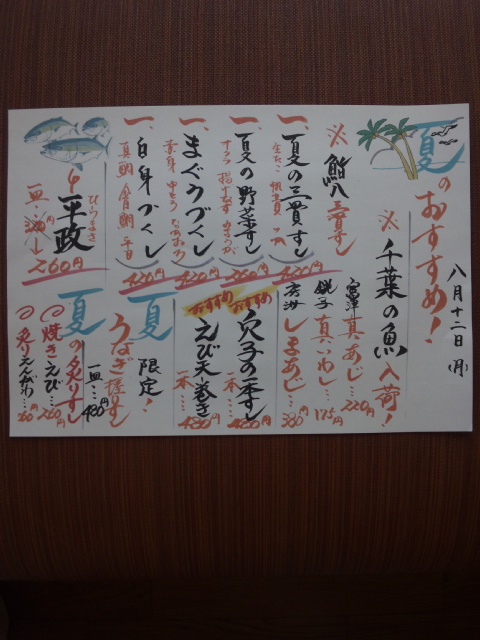 八月十二日(月)
夏のおすすめ!
※千葉の魚入荷!
富津 真あじ… 220円
銚子 真いわし… 175円
しまあじ… 380円
※鮨八三貫すし
一、夏の三貫すし
420円
一、夏の野菜すし
260円
一、まぐろづくし
赤身 中とろ
420円
一、白身づくし
真鯛 金目鯛 平目
420円
おすすめ
穴子の一本すし
一本… 480円
おすすめ
えび天巻き
一本… 480円
夏限定!
うなぎ握りすし
一皿… 480円
ひらまさ
平政
一皿
260円
夏の炙りすし
焼きえび… 260円
炙りえんがわ…